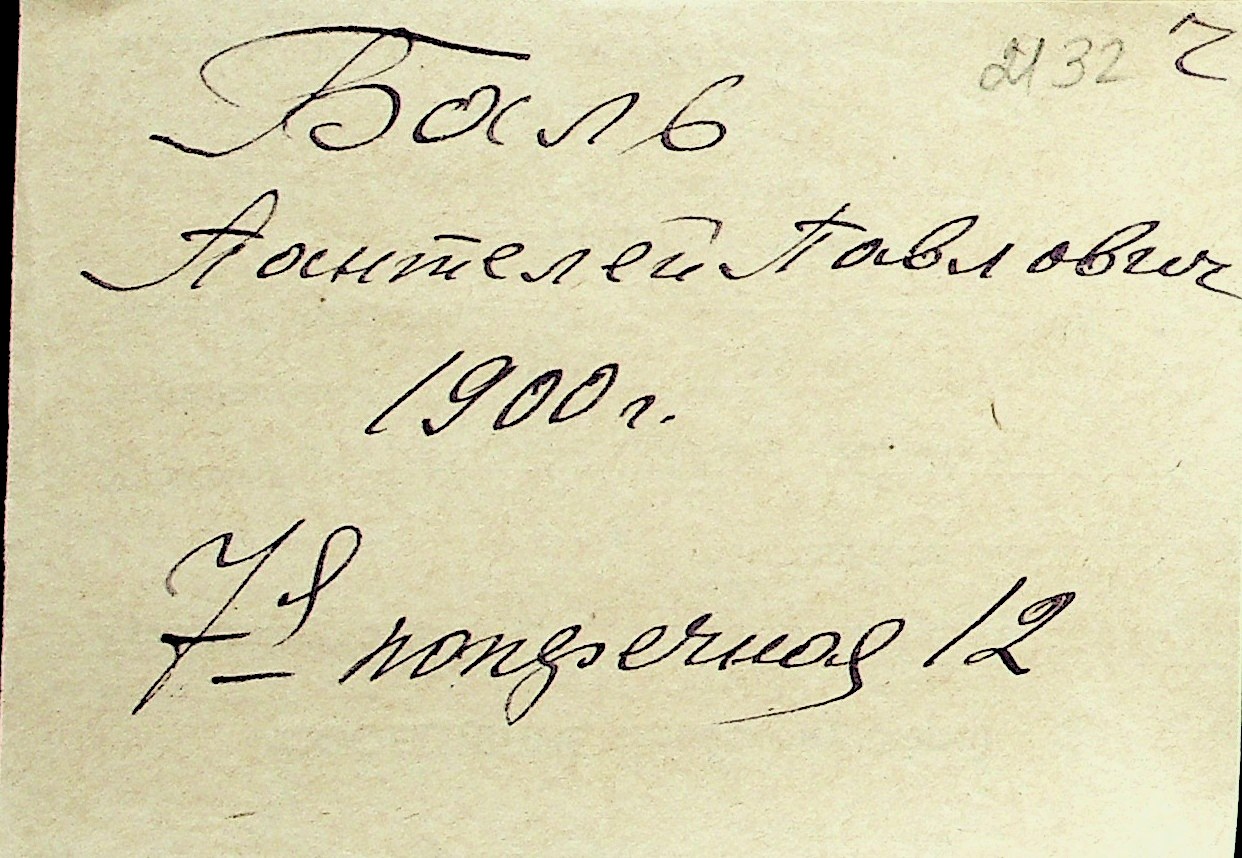 2132 ч
Баль
Пантелей Павлович
1900 г.
7я поперечная 12